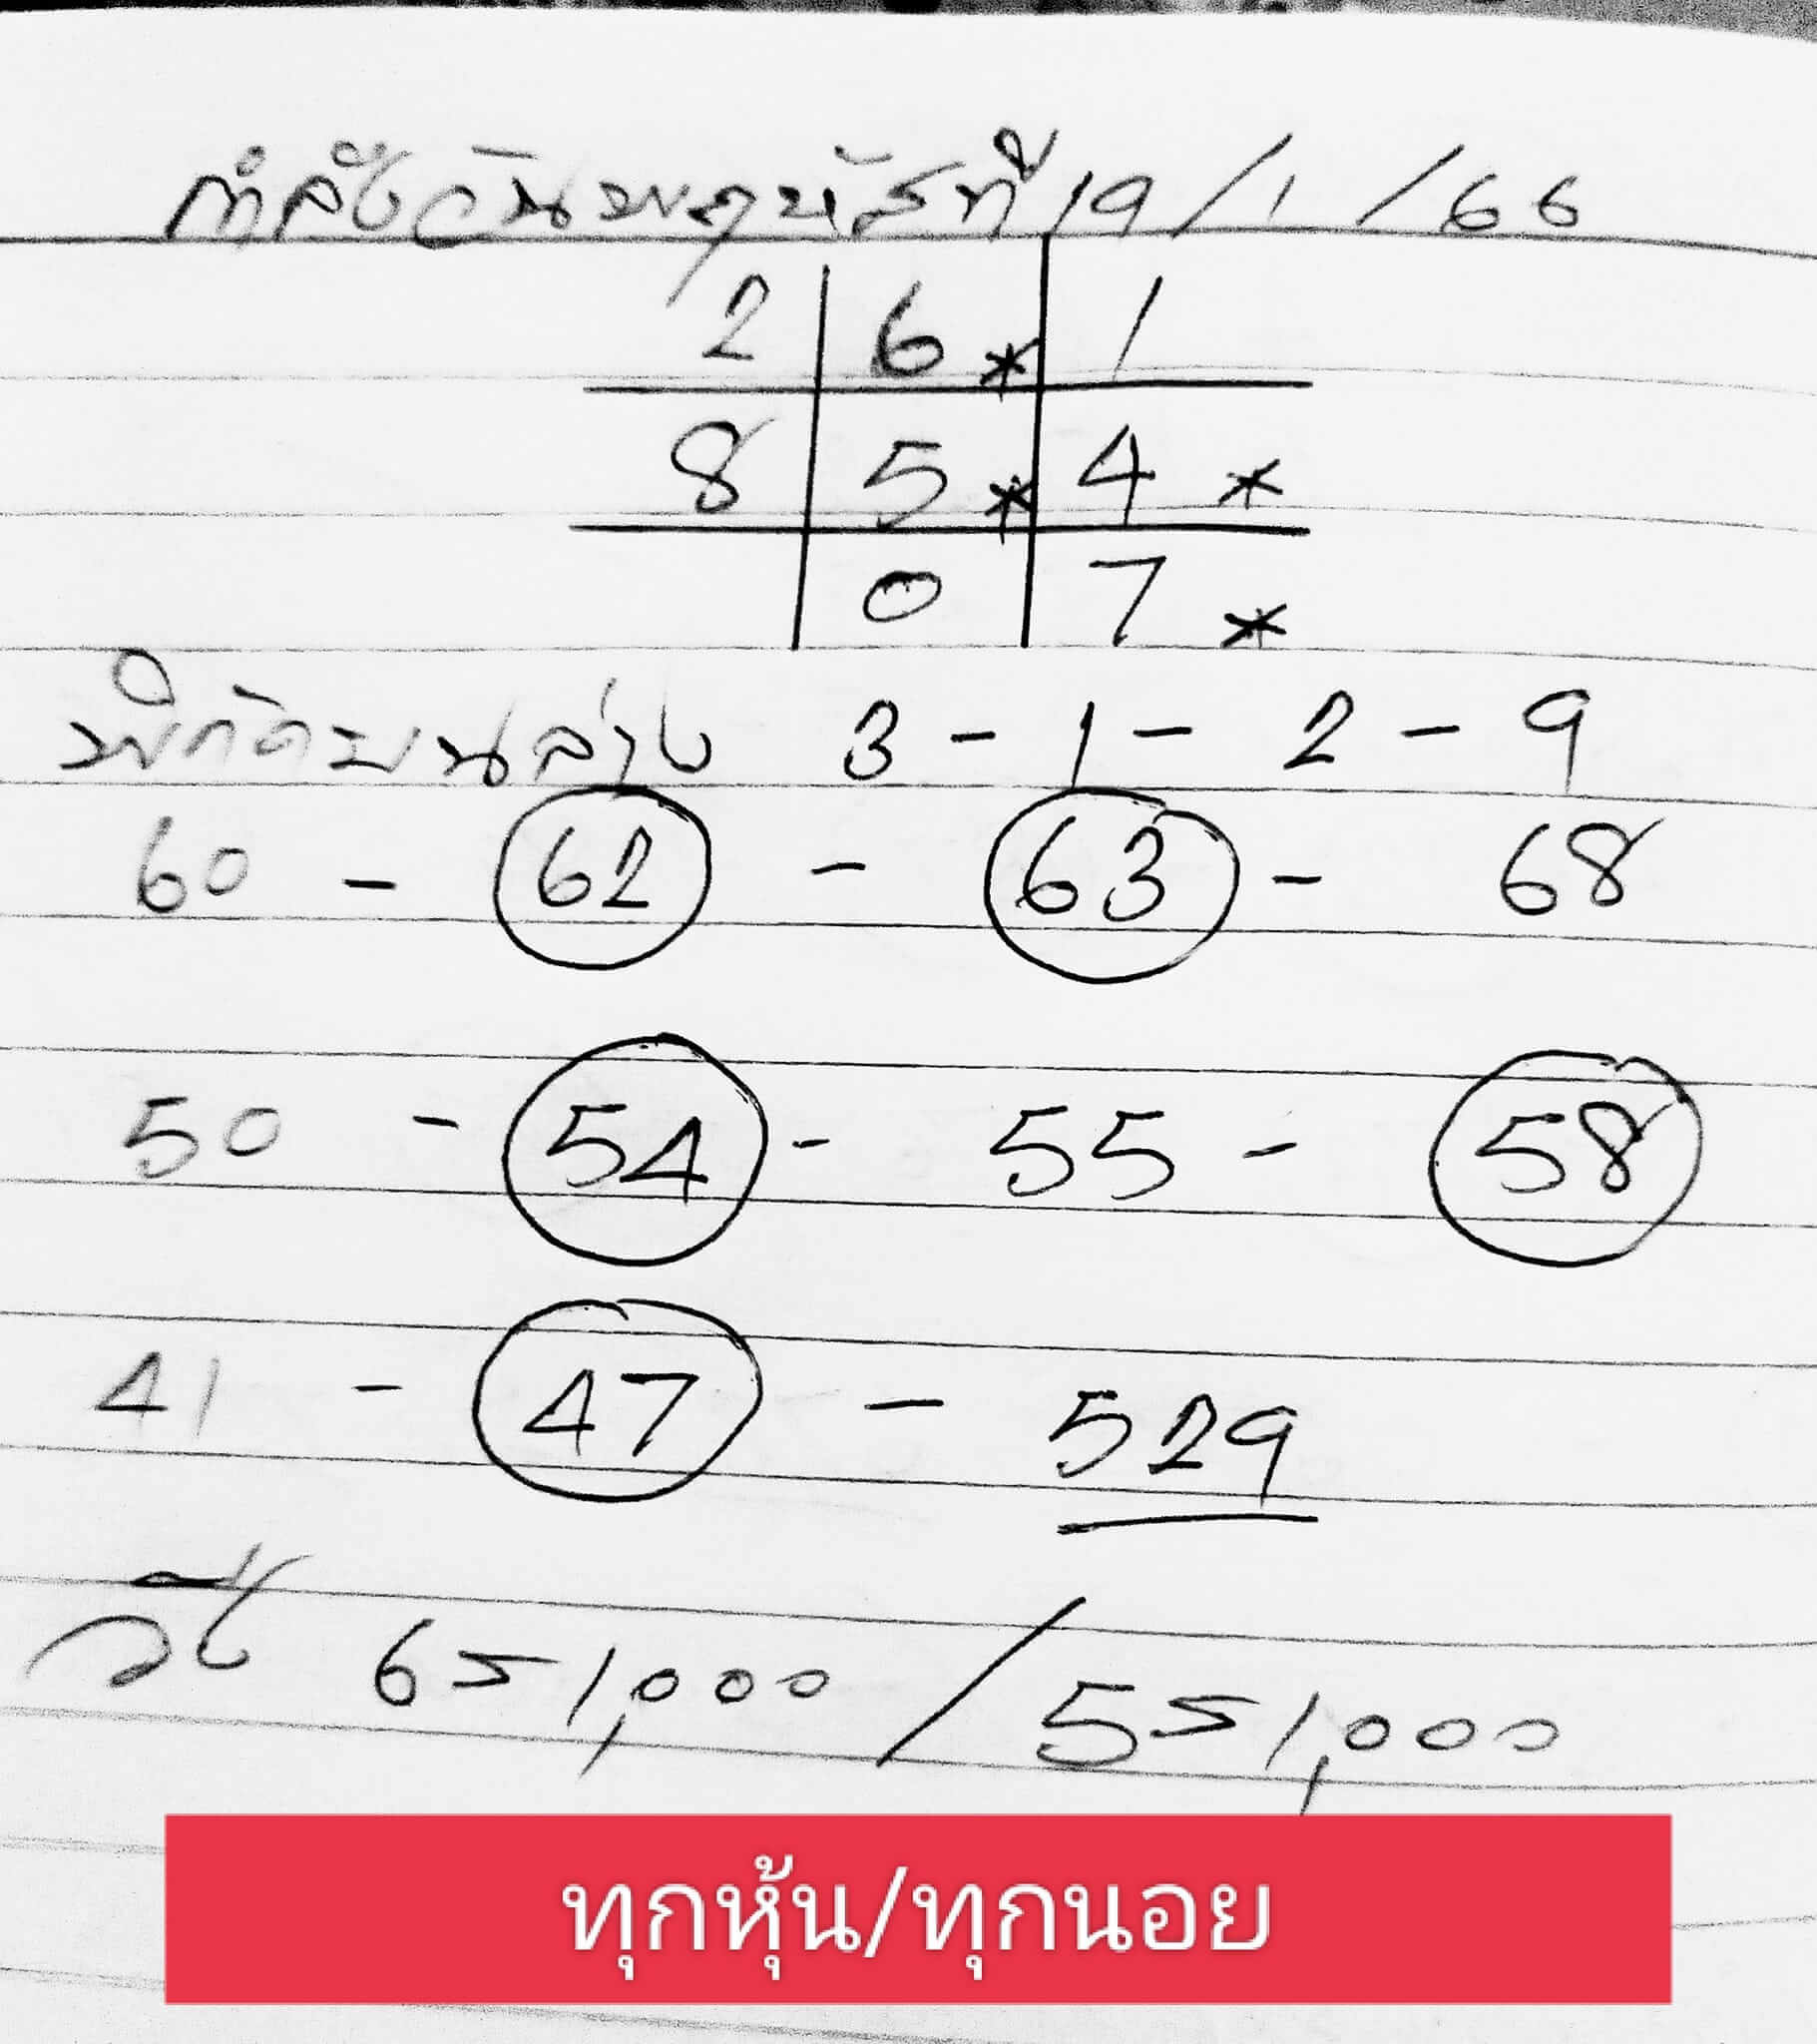 กำลังวันพฤหัสที่ 19/1/66
2 6* 1
8 5* 4*
0 7*
พิกัดบนล่าง 3 - 1 - 2 - 9
60 - 62 - 63 - 68
50 - 54 - 55 - 58
41 - 47 - 529
6 = 1,000 / 5 = 1,000
ทุกหุ้น/ทุกนอย